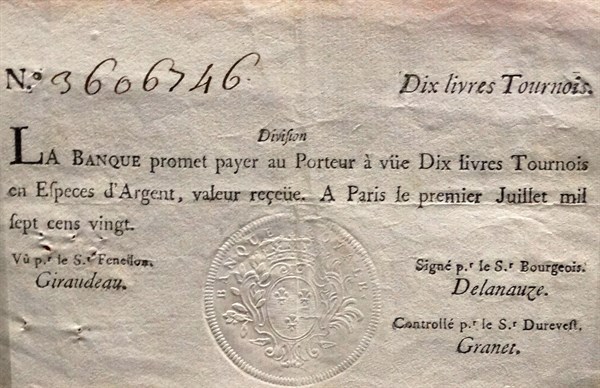 N.º 3606746. Dix livres Tournois.
Division
LA BANQUE promet payer au Porteur à vûe Dix livres Tournois
en Especes d'Argent, valeur reçeüe. A Paris le premier Juillet mil
sept cens vingt.
Vû p.r le S.r Fenellon.
Giraudeau.
Signé p.r le S.r Bourgeois.
Delanauze.
Controllé p.r le S.r Durevest.
Granet.
BANQUE ROYALE